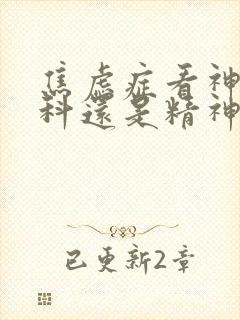 焦虑症看神
科還是精神
已更新2章